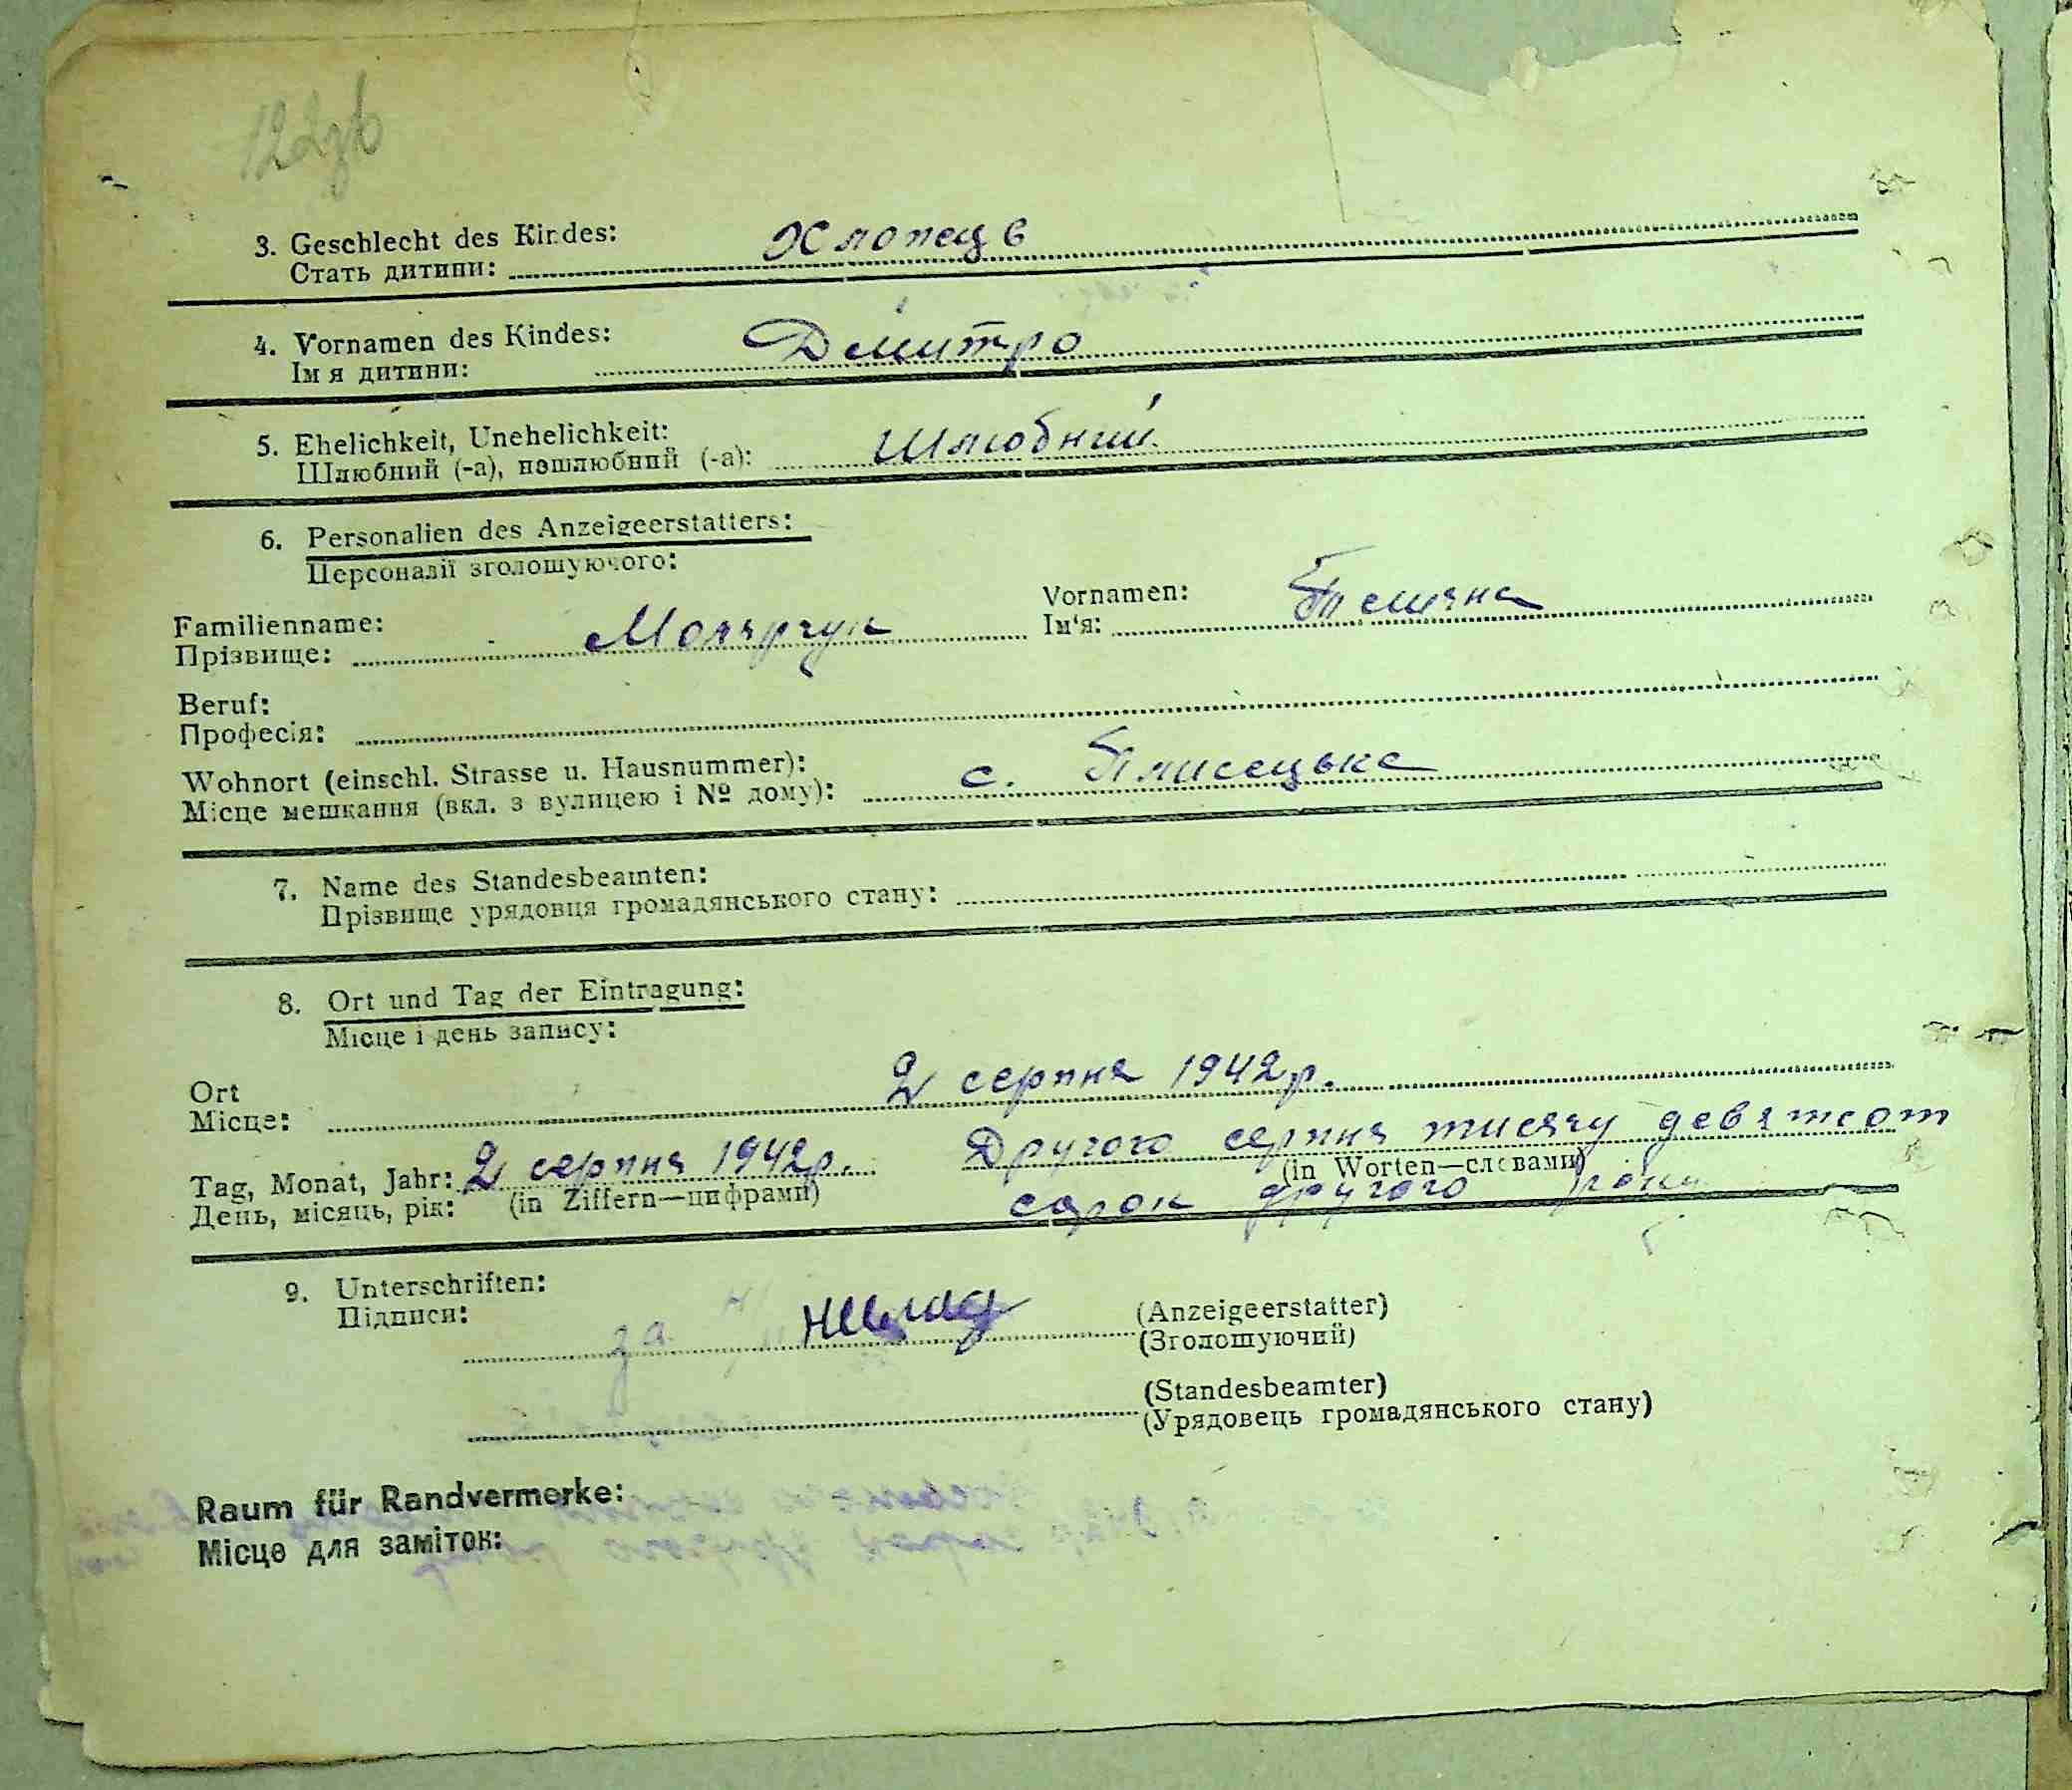 122зв
3. Geschlecht des Kindes: Хлопець
Стать дитини:
4. Vornamen des Kindes: Дмитро
Імя дитини:
5. Ehelichkeit, Unehelichkeit: Шлюбний
Шлюбний (-а), нешлюбний (-а):
6. Personalien des Anzeigeerstatters:
Персоналії зголошуючого:
Familienname: Vornamen:
Прізвище: Ім'я:
Beruf:
Професія:
Wohnort (einschl. Strasse u. Hausnummer): с. Плисецьке
Місце мешкання (вкл. з вулицею і № дому):
7. Name des Standesbeamten:
Прізвище урядовця громадянського стану:
8. Ort und Tag der Eintragung:
Місце і день запису:
Ort 2 серпня 1942 р.
Місце:
Tag, Monat, Jahr: 2 серпня 1942 р. Другого серпня тисячу девятсот
День, місяць, рік: (in Ziffern—цифрами) (in Worten—словами)
сорок другого року
9. Unterschriften:
Підписи: за (Anzeigeerstatter)
(Зголошуючий)
(Standesbeamter)
(Урядовець громадянського стану)
Raum für Randvermerke:
Місце для заміток: